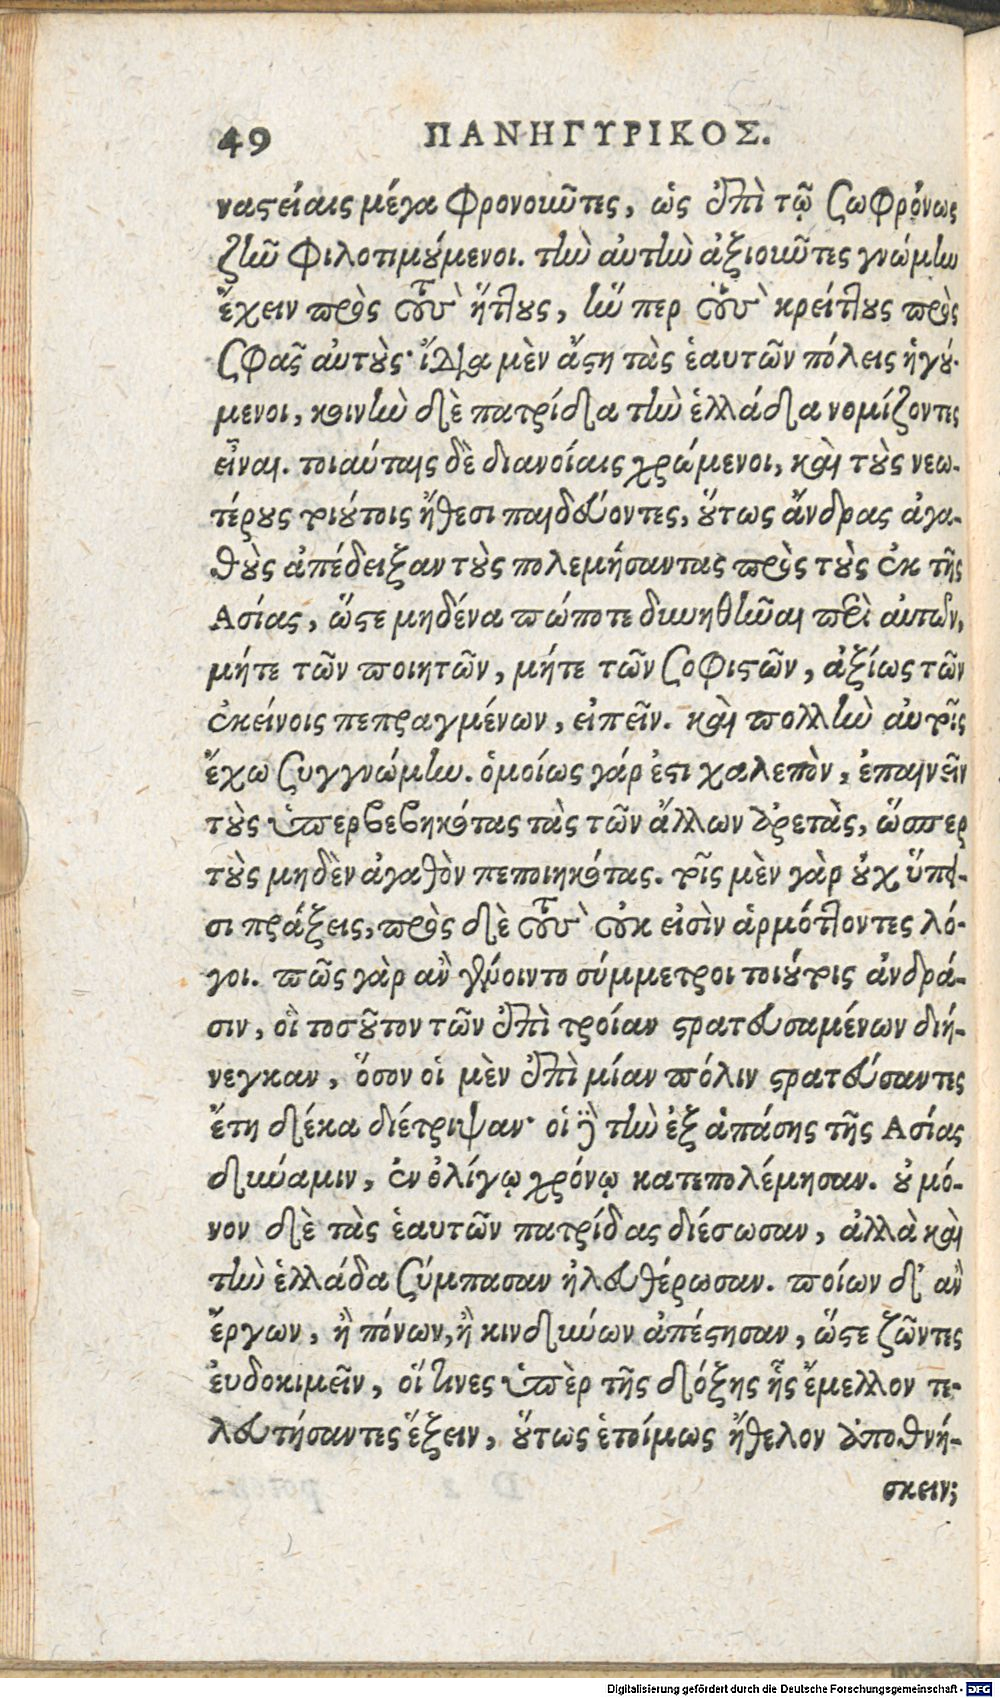 49 ΠΑΝΗΓΥΡΙΚΟΣ.
ναστείαις μέγα φρονοῦντες, ὡς ἐπὶ τῷ σωφρόνως
ζῆν φιλοτιμούμενοι. τὴν αὐτὴν ἀξιοῦντες γνώμην
ἔχειν πρὸς τοὺς ἥττους, ἥν περ τοὺς κρείττους πρὸς
σφᾶς αὐτούς· ἴδια μὲν ἄστη τὰς ἑαυτῶν πόλεις ἡγού-
μενοι, κοινὴν δὲ πατρίδα τὴν ἑλλάδα νομίζοντες
εἶναι. τοιαύταις δὲ διανοίαις χρώμενοι, καὶ τοὺς νεω-
τέρους τοιούτοις ἤθεσι παιδεύοντες, οὕτως ἄνδρας ἀγα-
θοὺς ἀπέδειξαν τοὺς πολεμήσαντας πρὸς τοὺς ἐκ τῆς
Ασίας, ὥστε μηδένα πώποτε δυνηθῆναι περὶ αὐτῶν,
μήτε τῶν ποιητῶν, μήτε τῶν σοφιστῶν, ἀξίως τῶν
ἐκείνοις πεπραγμένων, εἰπεῖν. καὶ πολλὴν αὐτοῖς
ἔχω συγγνώμην. ὁμοίως γάρ ἐστι χαλεπὸν, ἐπαινεῖν
τοὺς ὑπερβεβηκότας τὰς τῶν ἄλλων ἀρετὰς, ὥσπερ
τοὺς μηδὲν ἀγαθὸν πεποιηκότας. τοῖς μὲν γὰρ οὐχ ὕπει-
σι πράξεις, πρὸς δὲ τοὺς οὐκ εἰσὶν ἁρμόττοντες λό-
γοι. πῶς γὰρ ἂν γένοιντο σύμμετροι τοιούτοις ἀνδρά-
σιν, οἳ τοσοῦτον τῶν ἐπὶ τροίαν στρατευσαμένων διή-
νεγκαν, ὅσον οἱ μὲν ἐπὶ μίαν πόλιν στρατεύσαντες
ἔτη δέκα διέτριψαν· οἱ δὲ τὴν ἐξ ἁπάσης τῆς Ασίας
δύναμιν, ἐν ὀλίγῳ χρόνῳ κατεπολέμησαν. οὐ μό-
νον δὲ τὰς ἑαυτῶν πατρίδας διέσωσαν, ἀλλὰ καὶ
τὴν ἑλλάδα σύμπασαν ἠλευθέρωσαν. ποίων δ' ἂν
ἔργων, ἢ πόνων, ἢ κινδύνων ἀπέστησαν, ὥστε ζῶντες
εὐδοκιμεῖν, οἵ τινες ὑπὲρ τῆς δόξης ἧς ἔμελλον τε-
λευτήσαντες ἕξειν, οὕτως ἑτοίμως ἤθελον ἀποθνή-
σκειν;
Digitalisierung gefördert durch die Deutsche Forschungsgemeinschaft - DFG